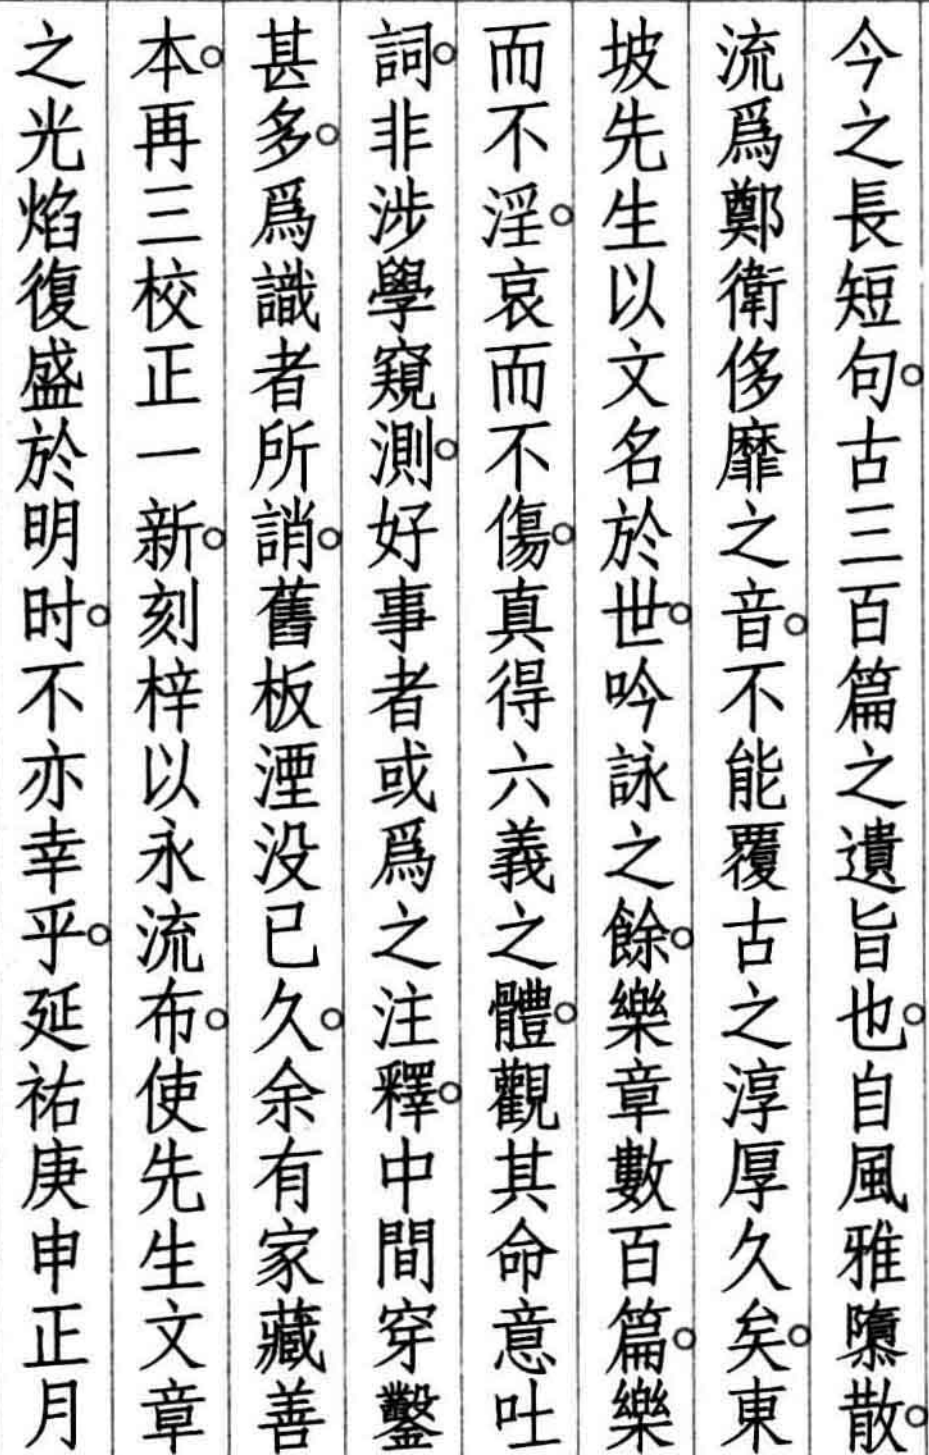 今之長短句。古三百篇之遺旨也。自風雅隳散。
流爲鄭衛侈靡之音。不能覆古之淳厚久矣。東
坡先生以文名於世。吟詠之餘。樂章數百篇。樂
而不淫。哀而不傷。真得六義之體。觀其命意吐
詞。非涉學窺測。好事者或爲之注釋。中間穿鑿
甚多。爲識者所誚。舊板湮没已久。余有家藏善
本。再三校正一新。刻梓以永流布。使先生文章
之光焰復盛於明时。不亦幸乎。延祐庚申正月